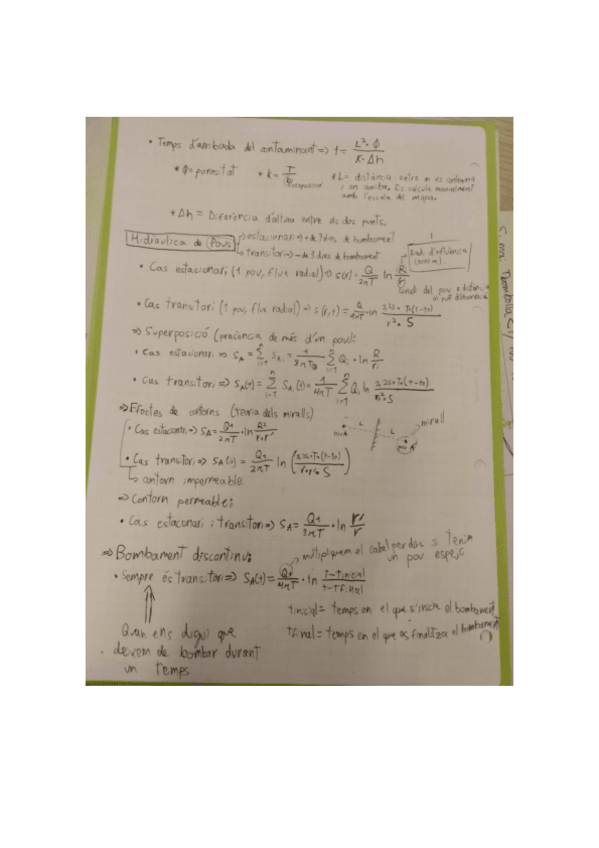 • Temps d'arribada del contaminant => t = L²·Φ / K·Δh
* Φ = porositat * k = T/b * L = distància entre
amb l'escala del mapa.
* Δh = Diferència d'altura entre els dos punts.
Hidràulica de Pous estacionari → + de 3 dies de bombament
transitori → - de 3 dies de bombament
Radi d'influència
• Cas estacionari (1 pou, flux radial) => s(r) = Q/2πT ln R/r
• Cas transitori (1 pou, flux radial) => s(r,t) = Q/4πT · ln 2,25·T·(t-t0) / r²·S
=> Superposició (presència de més d'un pou):
• Cas estacionari => SA = Σ SAi = 1/2πT Σ Qi · ln R/ri
• Cas transitori => SA(t) = Σ SAi(t) = 1/4πT Σ Qi ln 2,25·T·(t-t0) / ri²·S
=> Efectes de contorns (teoria dels miralls)
mirall
• Cas estacionari => SA = Q1/2πT · ln R²/r·r'
• Cas transitori => SA(t) = Q1/2πT ln (2,25·T·(t-t0) / r·r'·S)
→ contorn impermeable
=> Contorn permeable:
• Cas estacionari i transitori => SA = Q1/2πT · ln r'/r
=> Bombament discontinu: multipliquem el cabal per dos si tenim
un pou
• Sempre és transitori => SA(t) = Q1/4πT · ln t-tinicial / t-tfinal
tinicial = temps en el que s'inicia el bombament
tfinal = temps en el que es finalitza el bombament
Quan ens digui que
devem de bombar durant
un temps